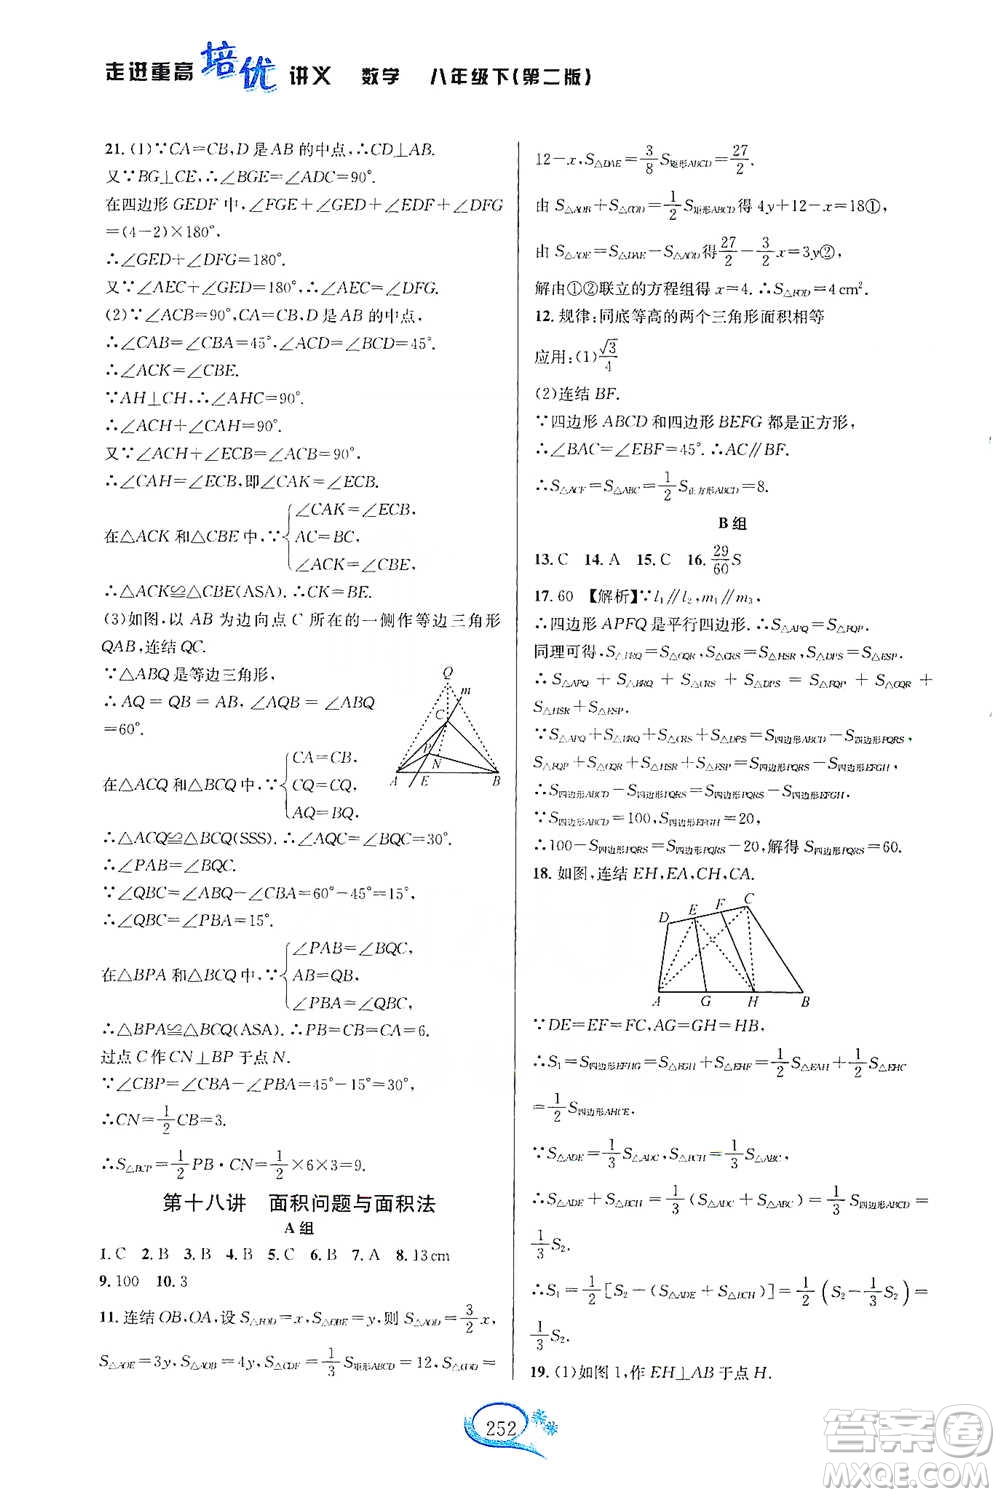 走进重高培优讲义 数学 八年级下(第二版)
21. (1)∵CA=CB,D是AB的中点,∴CD⊥AB.
又∵BG⊥CE,∴∠BGE=∠ADC=90°.
在四边形GEDF中,∠FGE+∠GED+∠EDF+∠DFG
=(4-2)×180°,
∴∠GED+∠DFG=180°.
又∵∠AEC+∠GED=180°,∴∠AEC=∠DFG.
(2)∵∠ACB=90°,CA=CB,D是AB的中点,
∴∠CAB=∠CBA=45°,∠ACD=∠BCD=45°.
∴∠ACK=∠CBE.
∵AH⊥CH,∴∠AHC=90°.
∴∠ACH+∠CAH=90°.
又∵∠ACH+∠ECB=∠ACB=90°,
∴∠CAH=∠ECB,即∠CAK=∠ECB.
∠CAK=∠ECB,
在△ACK和△CBE中,∵ AC=BC,
∠ACK=∠CBE,
∴△ACK≌△CBE(ASA).∴CK=BE.
(3)如图,以AB为边向点C所在的一侧作等边三角形
QAB,连结QC.
∵△ABQ是等边三角形,
∴AQ=QB=AB,∠QBA
=60°.
Q
m
C
D
N
A E B
CA=CB,
在△ACQ和△BCQ中,∵ CQ=CQ,
AQ=BQ,
∴△ACQ≌△BCQ(SSS).∴∠AQC=∠BQC=30°.
∴∠PAB=∠BQC.
∵∠QBC=∠ABQ-∠CBA=60°-45°=15°,
∴∠QBC=∠PBA=15°.
∠PAB=∠BQC,
在△BPA和△BCQ中,∵ AB=QB,
∠PBA=∠QBC,
∴△BPA≌△BCQ(ASA).∴PB=CB=CA=6.
过点C作CN⊥BP于点N.
∵∠CBP=∠CBA-∠PBA=45°-15°=30°,
∴CN=1/2CB=3.
∴S△BCP=1/2PB·CN=1/2×6×3=9.
第十八讲 面积问题与面积法
A组
1. C 2. B 3. B 4. B 5. C 6. B 7. A 8. 13cm
9. 100 10. 3
11. 连结OB,OA,设S△FOD=x,S△OBE=y,则S△AOD=3/2x,
S△AOE=3y,S△AOB=4y,S△CDF=1/3S矩形ABCD=12,S△COD=
12-x,S△DAE=3/8S矩形ABCD=27/2.
由S△AOB+S△COD=1/2S矩形ABCD得4y+12-x=18①,
由S△AOE=S△DAE-S△AOD得27/2-3/2x=3y②,
解由①②联立的方程组得x=4.∴S△FOD=4cm²
12. 规律:同底等高的两个三角形面积相等
应用:(1)√3/4
(2)连结BF.
∵四边形ABCD和四边形BEFG都是正方形,
∴∠BAC=∠EBF=45°.∴AC∥BF.
∴S△ACF=S△ABC=1/2S正方形ABCD=8.
B组
13. C 14. A 15. C 16. 29/60S
17. 60 【解析】∵l₁∥l₂,m₁∥m₃,
∴四边形APFQ是平行四边形.∴S△APQ=S△FQP.
同理可得S△BRQ=S△GQR,S△CRS=S△HSR,S△DPS=S△ESP.
∴S△APQ+S△BRQ+S△CRS+S△DPS=S△FQP+S△GQR+
S△HSR+S△ESP.
∵S△APQ+S△BRQ+S△CRS+S△DPS=S四边形ABCD-S四边形PQRS,
S△FQP+S△GQR+S△HSR+S△ESP=S四边形PQRS-S四边形EFGH,
∴S四边形ABCD-S四边形PQRS=S四边形PQRS-S四边形EFGH.
∵S四边形ABCD=100,S四边形EFGH=20,
∴100-S四边形PQRS=S四边形PQRS-20,解得S四边形PQRS=60.
18. 如图,连结EH,EA,CH,CA.
D E F C
A G H B
∵DE=EF=FC,AG=GH=HB,
∴S₁=S四边形EFHG=S△EGH+S△EHF=1/2S△EAH+1/2S△EHC
=1/2S四边形AHCE.
∵S△ADE=1/3S△ADC,S△BCH=1/3S△ABC,
∴S△ADE+S△BCH=1/3(S△ADC+S△ABC)=1/3S四边形ABCD=
1/3S₂.
∴S₁=1/2[S₂-(S△ADE+S△BCH)]=1/2(S₂-1/3S₂)=
1/3S₂.
19. (1)如图1,作EH⊥AB于点H.
252
答案圈
MXQE.COM